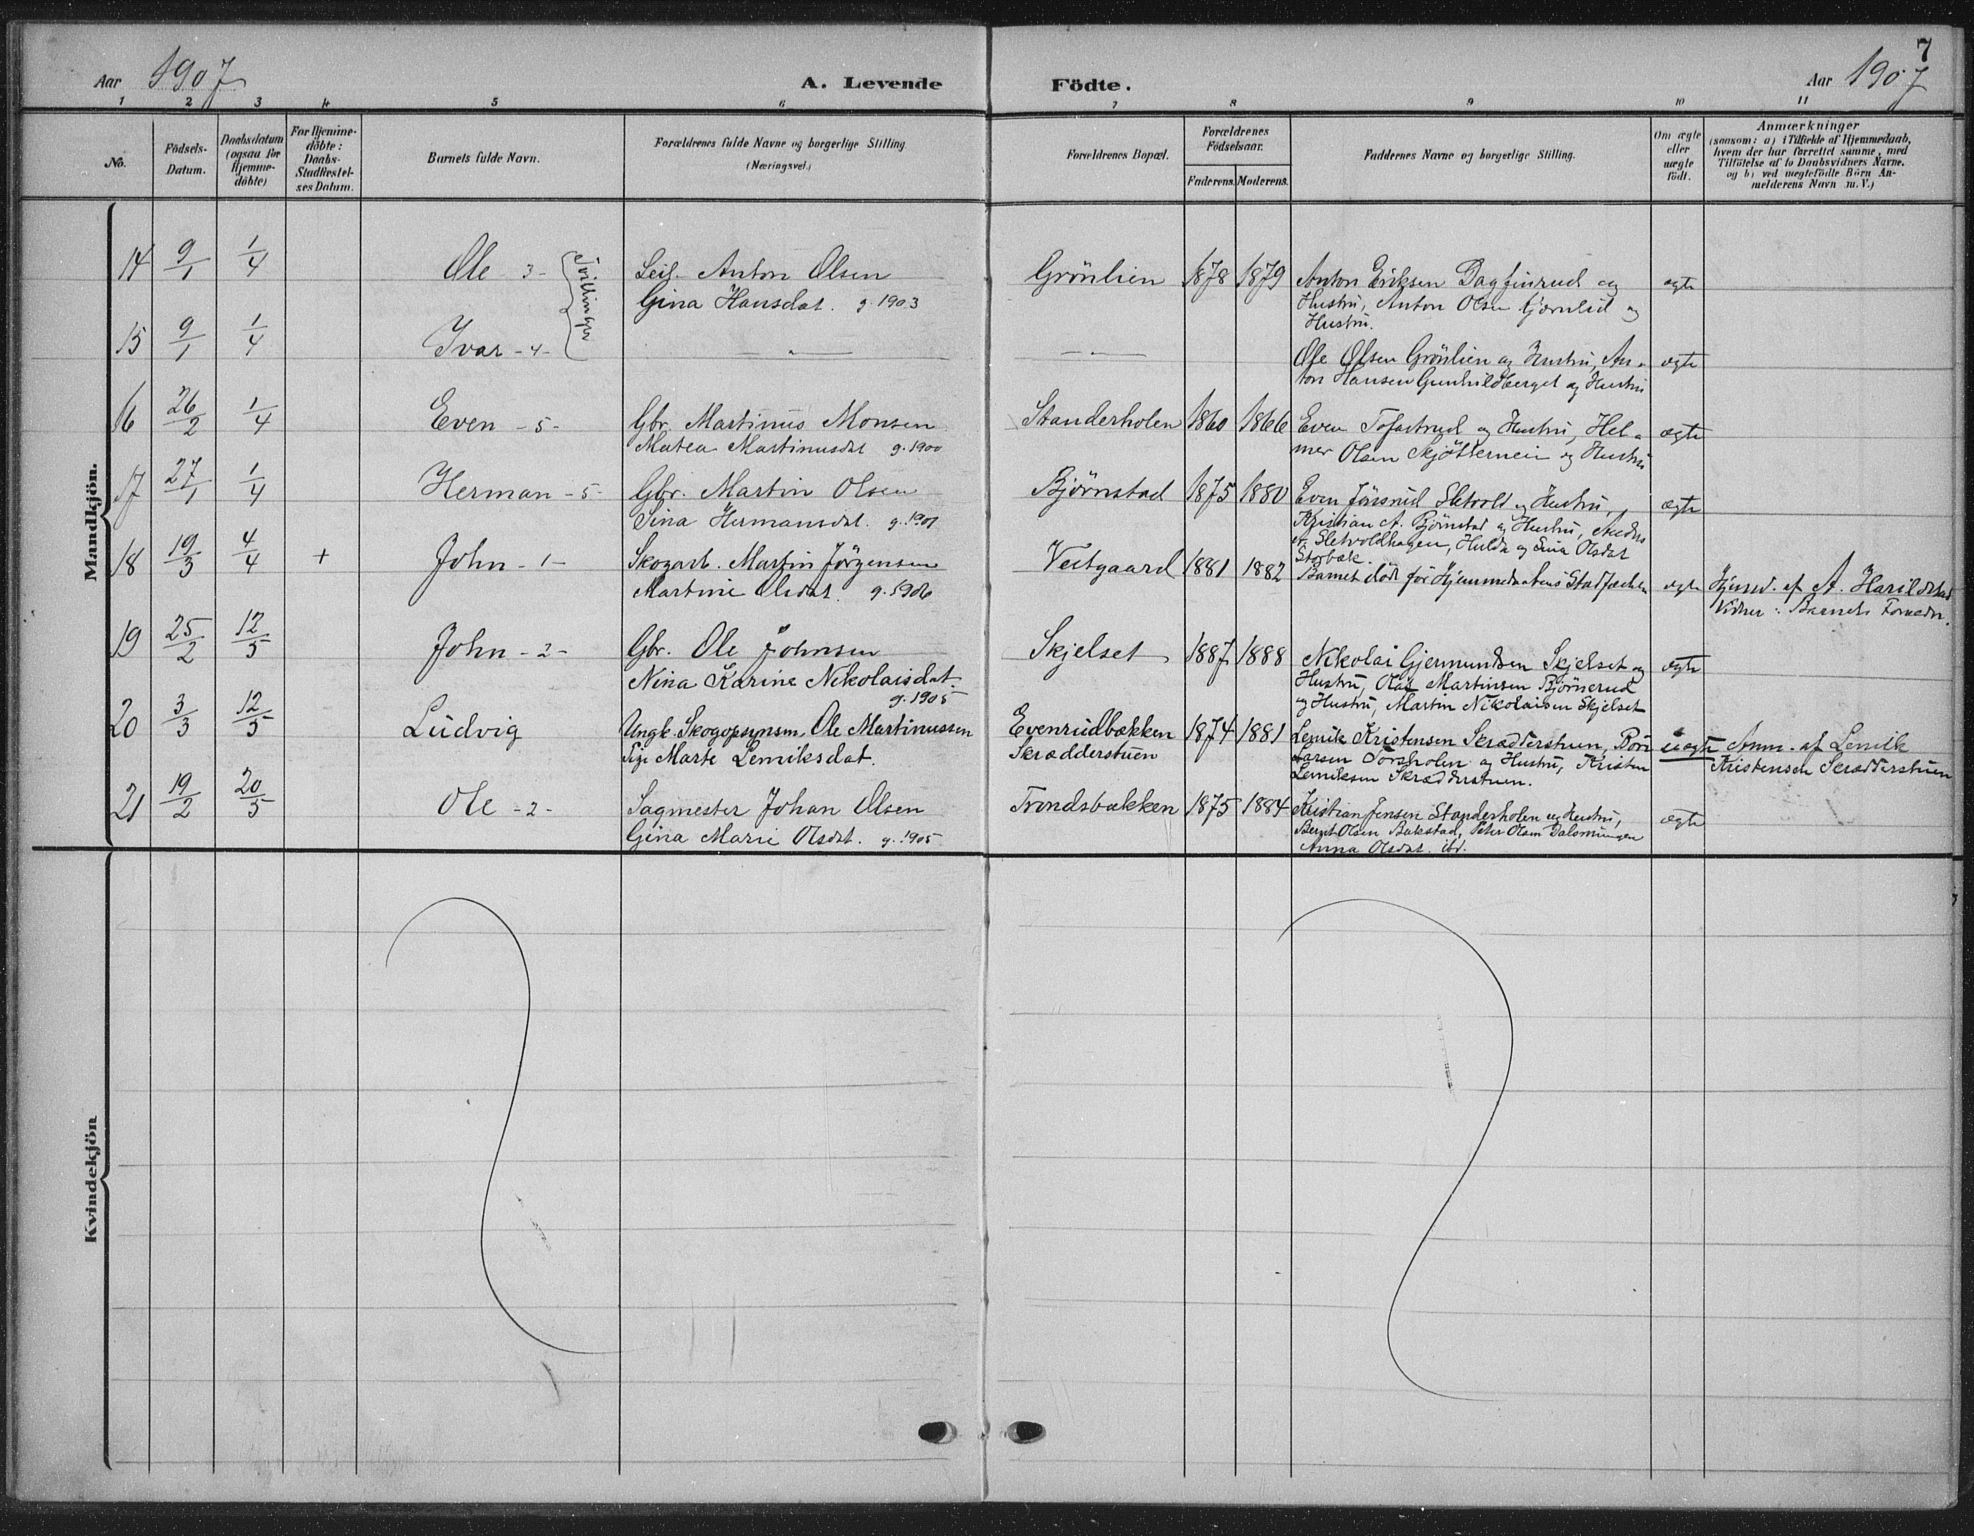 7
Aar 1907
A. Levende
Födte.
Aar 1907
1 2 3 4 5 6 7 8 9 10 11
No.
Fødsels-
Datum.
Daabsdatum
(ogsaa for
Hjemme-
döbte)
For Hjemme-
döbte:
Daabs-
Stadfæstel-
ses Datum.
Barnets fulde Navn.
Forældrenes fulde Navne og borgerlige Stilling
(Næringsvei.)
Forældrenes Bopæl.
Forældrenes
Födselsaar.
Faderens. Moderens.
Faddernes Navne og borgerlige Stilling.
Om ægte
eller
uægte
født.
Anmærkninger
(saasom: a) i Tilfælde af Hjemmedaab,
hvem der har forrettet samme, med
Tilföielse af to Daabsvidners Navne.
og b) ved uægtefødte Börn An-
melderens Navn m. V.)
Mandkjön.
14 9/1 1/4 Ole - 3 - Tvillinger
Leil. Anton Olsen
Gina Hansdat. g. 1903
Grönlien 1878 1879
Anton Eriksen Dagfinrud og
Hustru, Anton Olsen og
Hustru.
ægte
15 9/1 1/4 Ivar - 4 -
— " —
— " —
Ole Olsen Grönlien og Hustru, An-
ton Hansen Gunhildberget og Hustru
ægte
16 26/2 1/4 Even - 5 -
Gbr. Martinus Monsen
Matea Martinusdat g. 1900
Standerholen 1860 1866
Even Tofastrud og Hustru, Hel-
mer Olsen og Hustru
ægte
17 27/1 1/4 Herman - 5 -
Gbr. Martin Olsen
Sina Hermansdat. g. 1901
Bjørnstad 1875 1880
Even Sletvold og Hustru,
Kristian A. Bjørnstad og Hustru, Anders
Sletvoldhagen, Hulda og Sina Olsdat
Storbæk.
ægte
18 19/3 4/4 + John - 1 -
Skogarb. Martin Jörgensen
Martine Olsdat. g. 1906
Vestgaard 1881 1882
Barnet döde för Hjemmedaabens Stadfæstelse
ægte
Hjemd. af A. Harildstad
Vidner: Barnets Forældre.
19 25/2 12/5 John - 2 -
Gbr. Ole Johnsen
Nina Karine Nikolaisdat.
g. 1905
Skjelset 1887 1888
Nikolai Gjermundsen Skjelset og
Hustru, Olaf Martinsen Bjørnerud
og Hustru, Martin Nikolaisen Skjelset
ægte
20 3/3 12/5 Ludvig
Ungk. Skogopsynsm. Ole Martinussen
Pige Marte Lemiksdat.
Evenrudbækken
Skrædderstuen
1874 1881
Lemik Kristensen Skrædderstuen, Börre
Larsen Torsholen og Hustru, Kristen
Lemiksen Skrædderstuen.
uægte
Anm. af Lemik
Kristensen Skrædderstuen
21 19/2 20/5 Ole - 2 -
Sagmester Johan Olsen
Gina Marie Olsdat. g. 1905
Trondsbækken 1875 1884
Kristian Jensen Standerholen og Hustru,
Bernt Olsen Bakstad, Peter Olsen
Anna Olsdat. ibd.
ægte
Kvindekjön